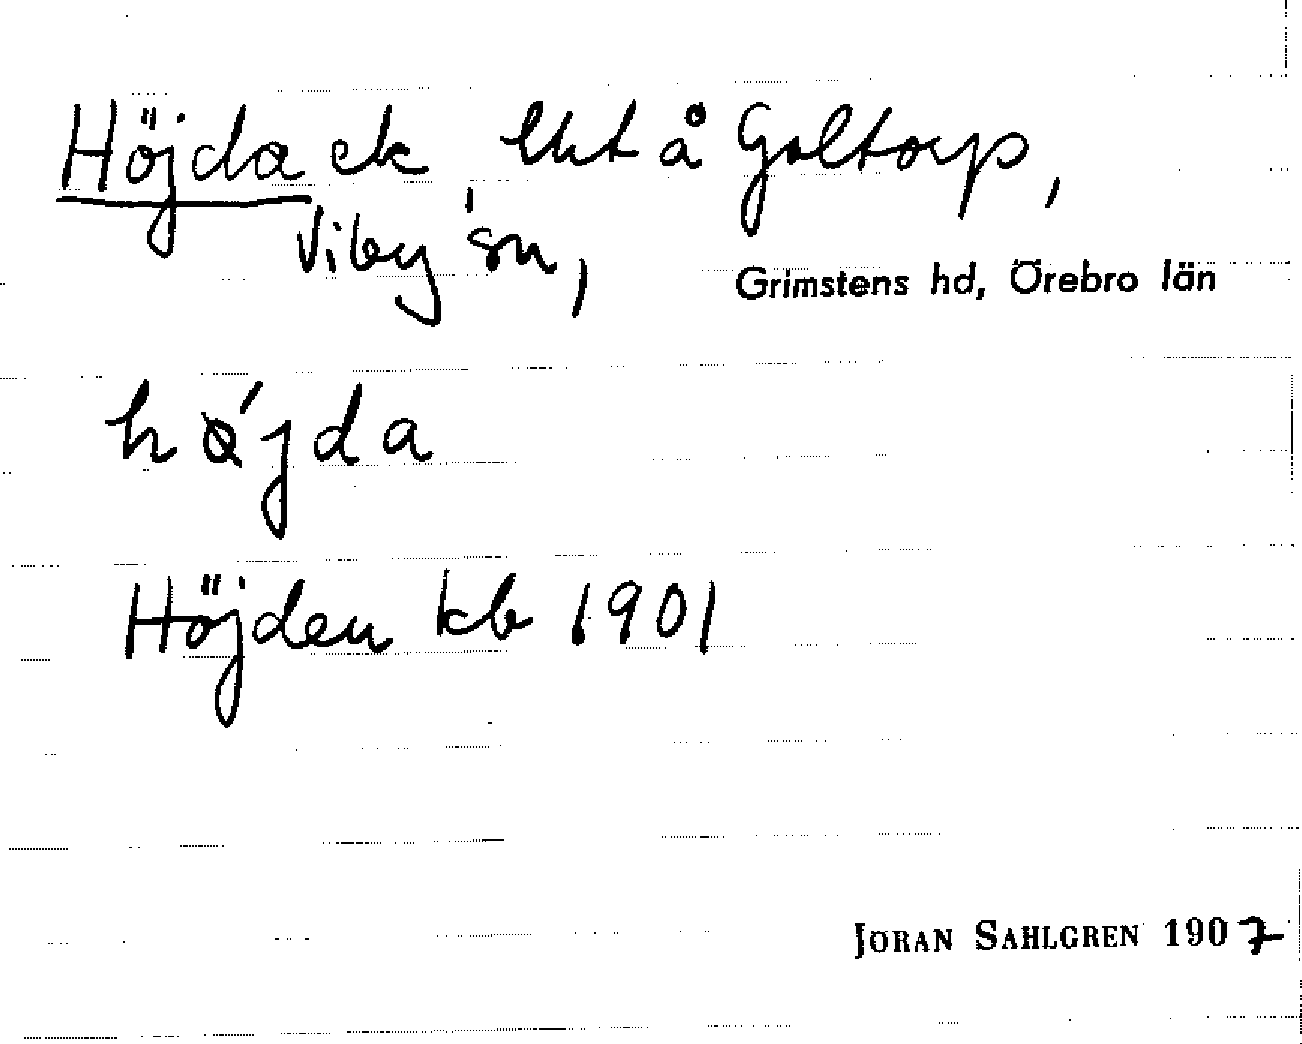 Höjda ek lht å Goltorp,
Viby sn,
Grimstens hd, Örebro län
höjda
Höjden kb 1901
JÖRAN SAHLGREN 1907